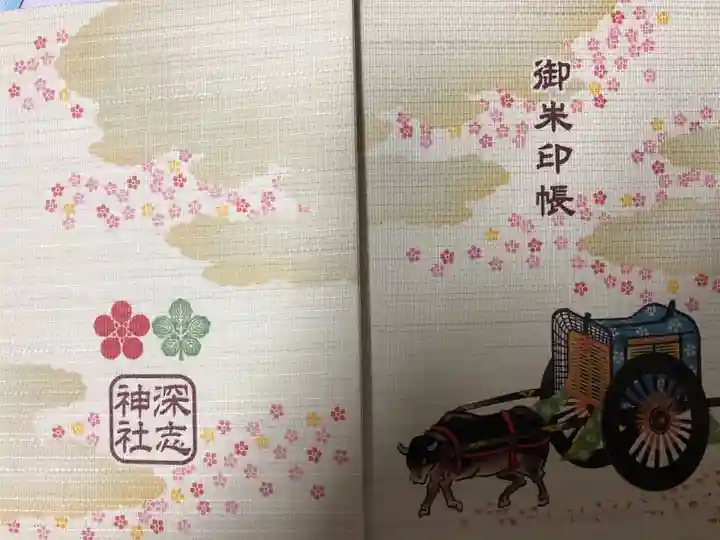 御朱印帳
深志
神社